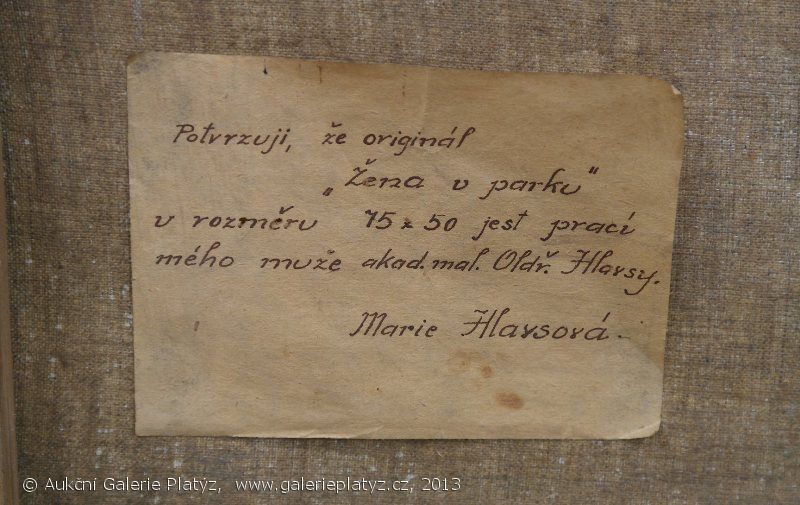 Potvrzuji, že originál
„Žena v parku"
v rozměru 75 x 50 jest prací
mého muže akad. mal. Oldř. Hlavsy.
Marie Hlavsová.
© Aukční Galerie Platýz, www.galerieplatyz.cz, 2013